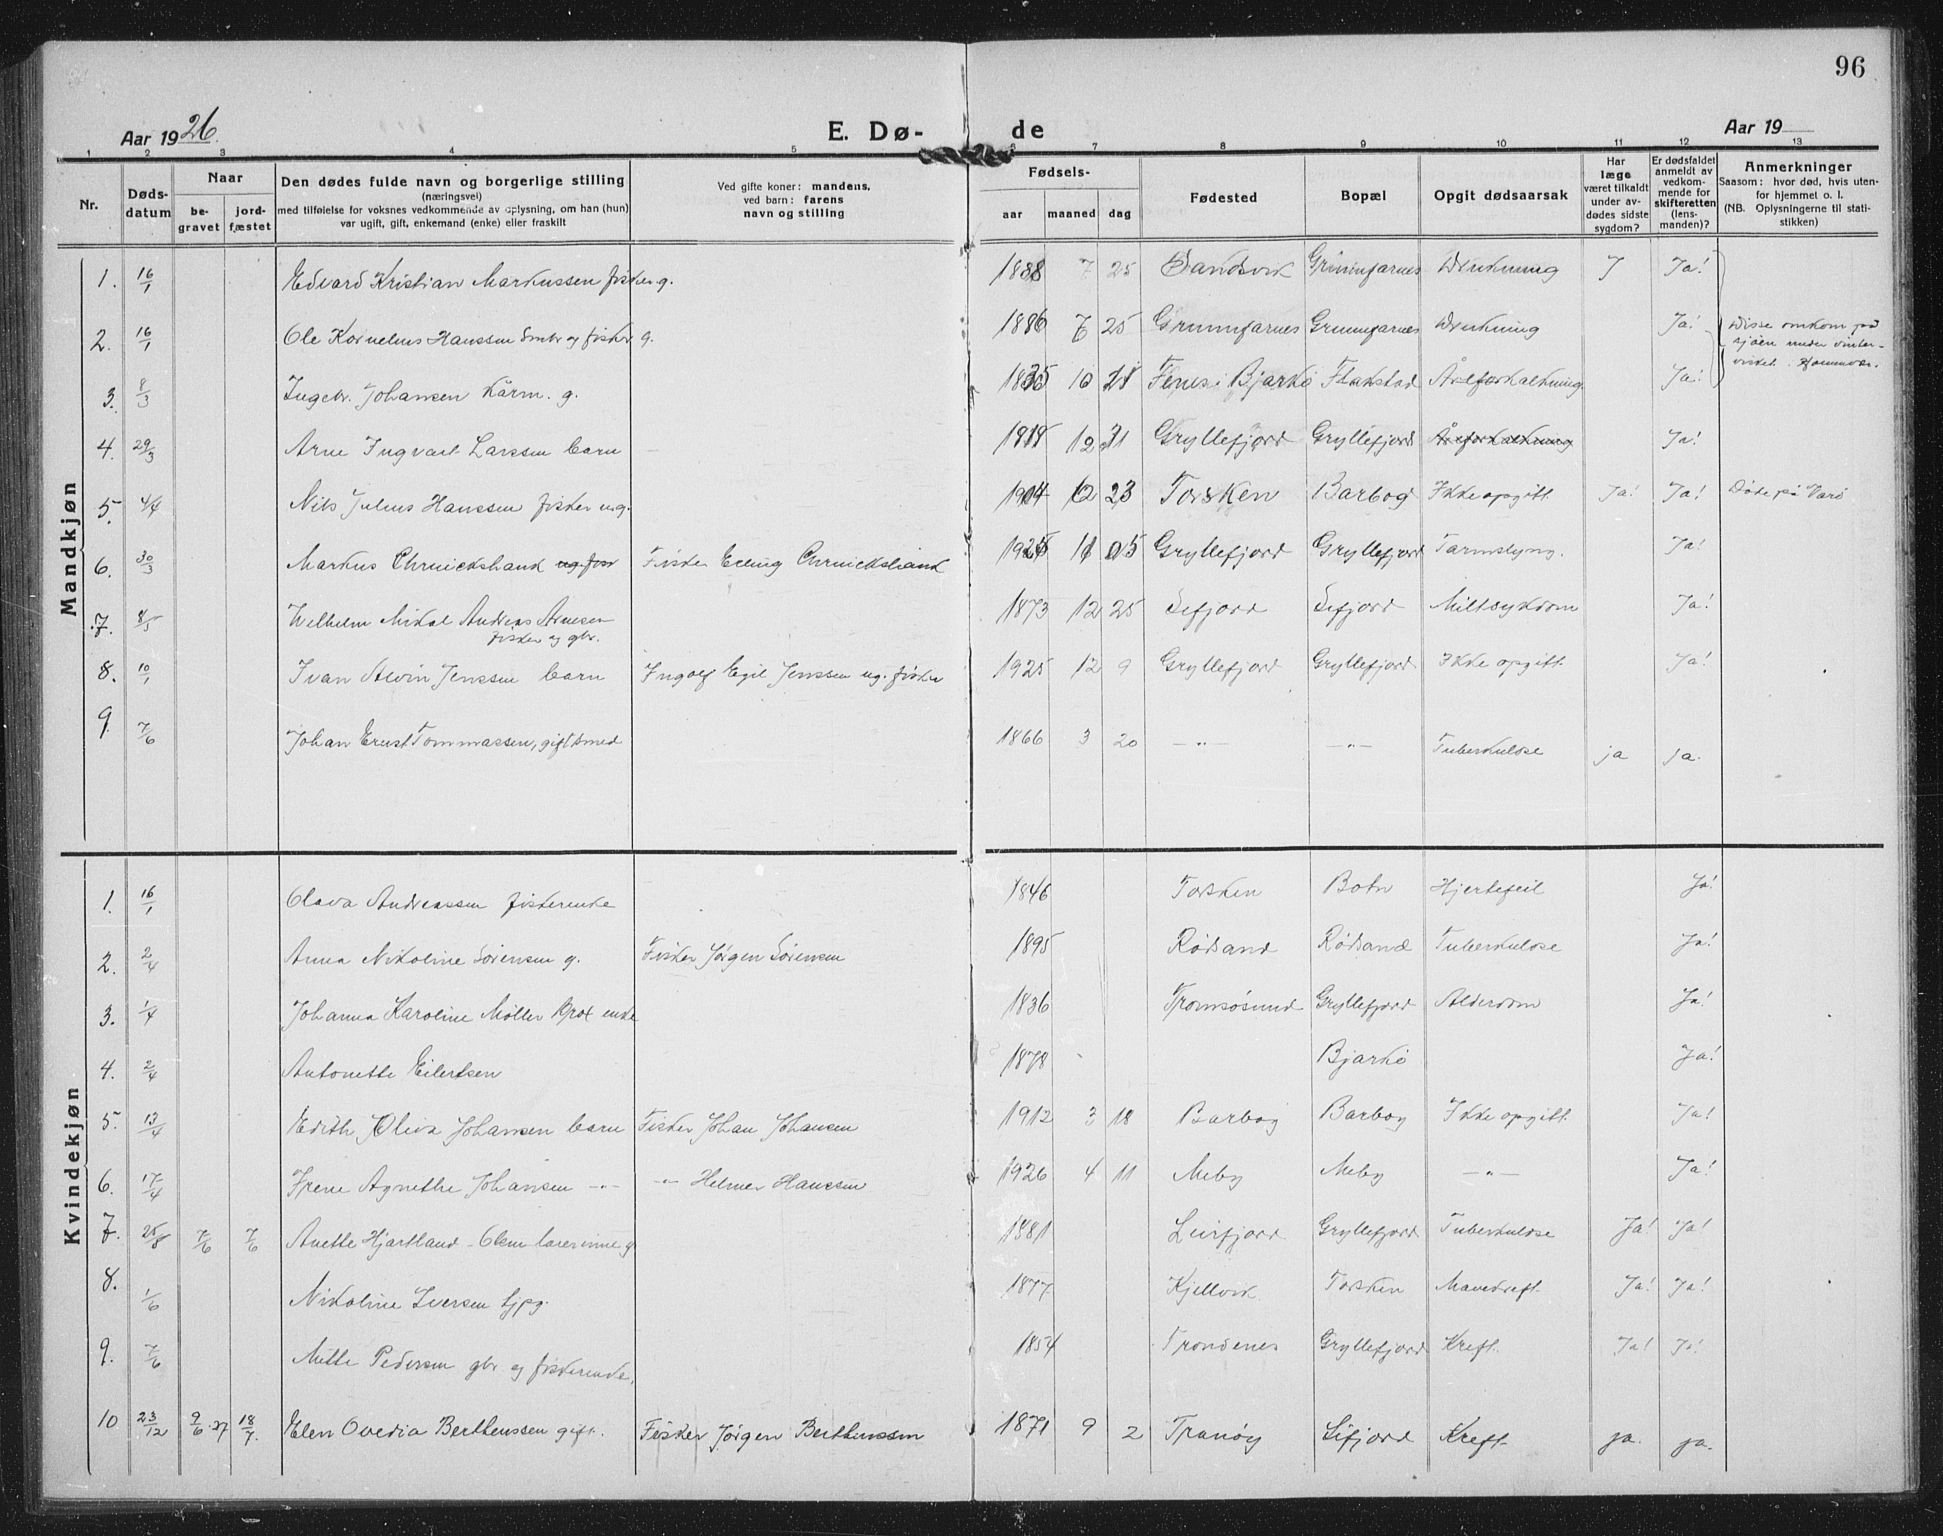 96
Aar 1926.
E. Dø-
de
Aar 19
1 2 3 4 5 6 7 8 9 10 11 12 13
Nr.
Døds-
datum
Naar
be-
gravet
jord-
fæstet
Den dødes fulde navn og borgerlige stilling
(næringsvei)
med tilføielse for voksnes vedkommende av oplysning, om han (hun)
var ugift, gift, enkemand (enke) eller fraskilt
Ved gifte koner: mandens,
ved barn: farens
navn og stilling
Fødsels-
aar maaned dag
Fødested
Bopæl
Opgit dødsaarsak
Har
læge
været tilkaldt
under av-
dødes sidste
sygdom?
Er dødsfaldet
anmeldt av
vedkom-
mende for
skifteretten
(lens-
manden)?
Anmerkninger
Saasom: hvor død, hvis uten-
for hjemmet o. l.
(NB. Oplysningerne til stati-
stikken)
Mandkjøn
1. 16/1 Edvard Kristian Markussen fisker g. 1888 7 25 Sandsvik Grunnfarnes Drukning J Ja!
2. 16/1 Ole Kornelius Hanssen Smbr og fisker g. 1886 7 25 Grunnfarnes Grunnfarnes Drukning Ja!
Disse omkom på
sjøen under vinter-
3. 8/3 Ingebr. Johansen Kårm. g. 1835 10 21 Fenes i Bjarkö Flakstad Åreforkalkning Ja!
4. 29/3 Arne Ingvart Larssen barn Gryllefjord Gryllefjord Åreforkalkning Ja!
5. 4/4 Nils Julius Hanssen fisker ug. 23 Torsken Barbog Ikke opgitt Ja! Ja! Döde på Varö
6. 30/3 Markus Chruickshank Fisker Erling Chruickshank 1925 Gryllefjord Gryllefjord Tarmslyng. Ja!
7. 8/5 Welhelm Mikal Andreas Arnesen
fisker og gbr. 1873 12 25 Sifjord Sifjord Miltsykdom Ja!
8. 10/1 Ivan Alvin Jenssen barn Ingolf Egil Jenssen ug. fisker 1925 12 9 Gryllefjord Gryllefjord Ikke opgitt Ja!
9. 7/6 Johan Ernst Tommassen, gift smed 1866 3 20 —"— —"— Tuberkulose ja ja.
Kvindekjøn
1. 16/1 Olava Andreassen fiskerenke 1846 Torsken Botn Hjertefeil Ja!
2. 2/4 Anna Nikoline Sörensen g. Fisker Jørgen Sörensen 1895 Rödsand Rödsand Tuberkulose Ja!
3. 1/4 Johanna Karoline Møller Kprox enke 1836 Tromsösund Gryllefjord Alderdom Ja!
4. 2/4 Antonette Eilertsen 1878 Bjarkö Ja!
5. 13/4 Edith Oliva Johansen barn Fisker Johan Johansen 1912 3 18 Barbog Barbog Ikke opgitt Ja!
6. 17/4 Irene Agnethe Johansen —"— —"— Helmer Hanssen 1926 4 11 Meby Meby —"— Ja!
7. 25/8 7/6 7/6 Anette Hjartland-Olsen lærerinne g 1881 Leirfjord Gryllefjord Tuberkulose Ja! Ja!
8. 1/6 Nikoline Iversen tjpg. 1877 Kjellvik Torsken Mavekreft Ja! Ja!
9. 7/6 Mette Pedersen gbr. og fiskerenke, 1854 Trondenes Gryllefjord Kreft Ja! Ja!
10 23/12 9/6 27 18/7. Elen Ovedia Berthenssen gift. Fisker Jørgen Berthenssen 1871 9 2 Tranöy Sifjord Kreft ja. ja.